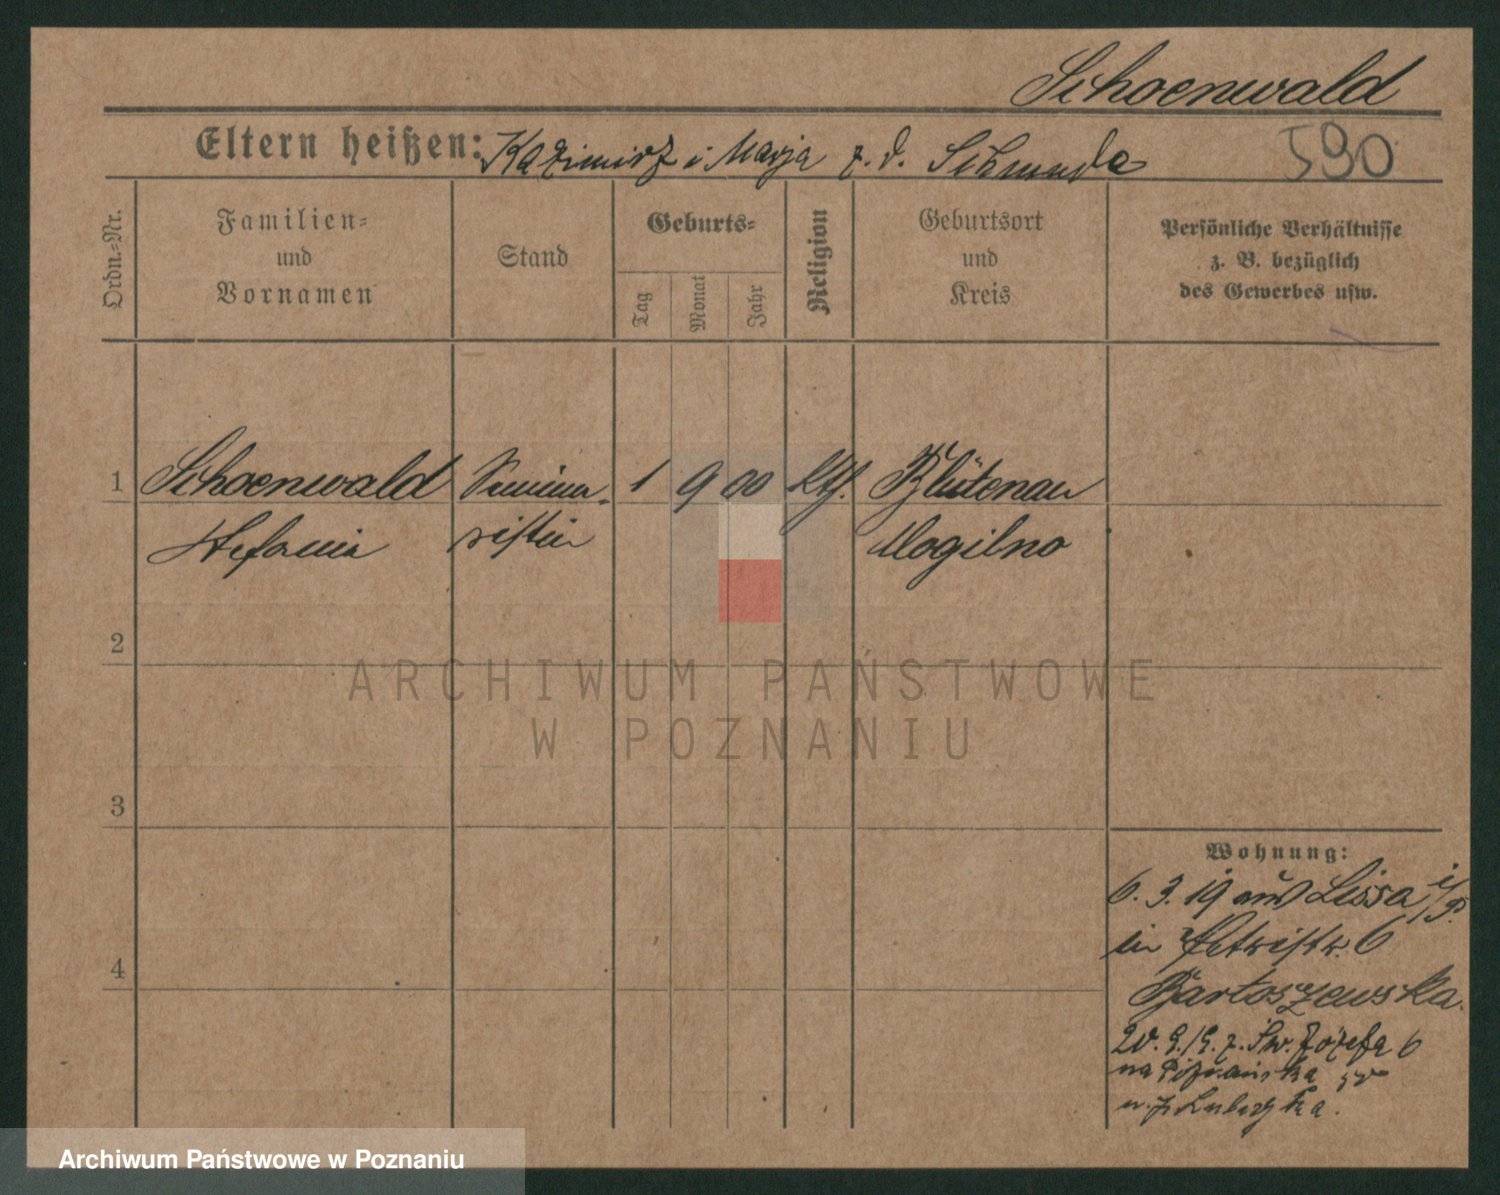 Schoenwald
Eltern heißen: Kazimirz i Marja z. d. Schmuda
590
Ordn.-Nr.
Familien- und Vornamen
Stand
Geburts-
Tag
Monat
Jahr
Religion
Geburtsort und Kreis
Persönliche Verhältnisse
z. B. bezüglich
des Gewerbes usw.
1 Schoenwald Semina- 1 9 00 kth. Blütenau
Stefania ristin Mogilno
2
3
4
Wohnung:
6. 3. 19 aus Lissa i/P.
in Petristr. 6
Bartoszewska.
20. 9. 19. z. Św. Józefa 6
na Poznańska
u. p.
ARCHIWUM PAŃSTWOWE
W POZNANIU
Archiwum Państwowe w Poznaniu